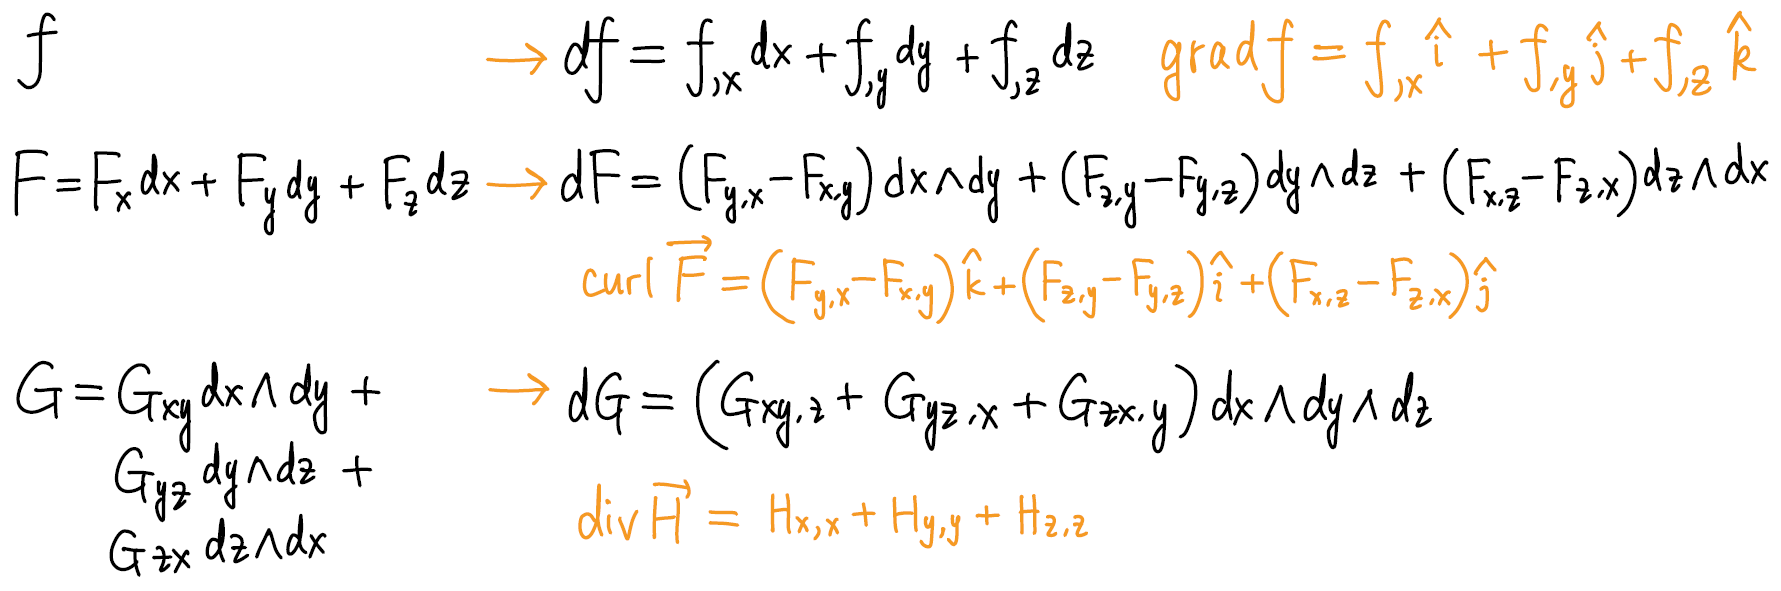 f → df = f,x dx + f,y dy + f,z dz grad f = f,x î + f,y ĵ + f,z k̂
F = Fx dx + Fy dy + Fz dz → dF = (Fy,x − Fx,y) dx∧dy + (Fz,y − Fy,z) dy∧dz + (Fx,z − Fz,x) dz∧dx
curl F⃗ = (Fy,x − Fx,y) k̂ + (Fz,y − Fy,z) î + (Fx,z − Fz,x) ĵ
G = Gxy dx∧dy + → dG = (Gxy,z + Gyz,x + Gzx,y) dx∧dy∧dz
Gyz dy∧dz +
div H⃗ = Hx,x + Hy,y + Hz,z
Gzx dz∧dx